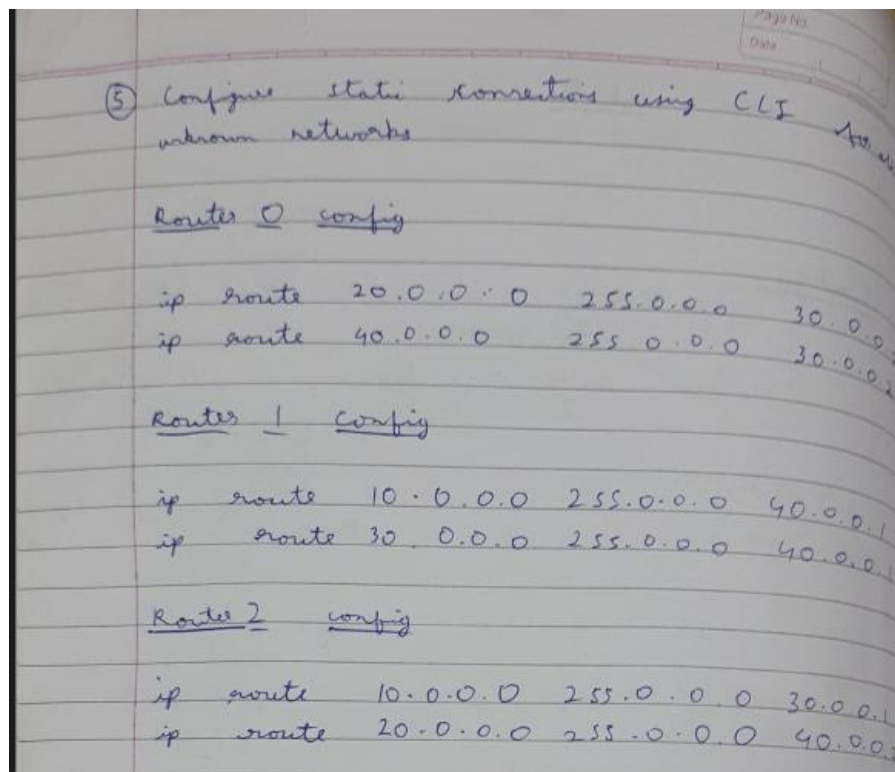 Page No.
Date
⑤ Configure static connections using CLI for
unknown networks
Router 0 config
ip route 20.0.0.0 255.0.0.0 30.0.0.
ip route 40.0.0.0 255 0.0.0 30.0.0.2
Router 1 config
ip route 10.0.0.0 255.0.0.0 40.0.0.1
ip route 30 0.0.0 255.0.0.0 40.0.0.1
Router 2 config
ip route 10.0.0.0 255.0.0.0 30.0.0.1
ip route 20.0.0.0 255.0.0.0 40.0.0.